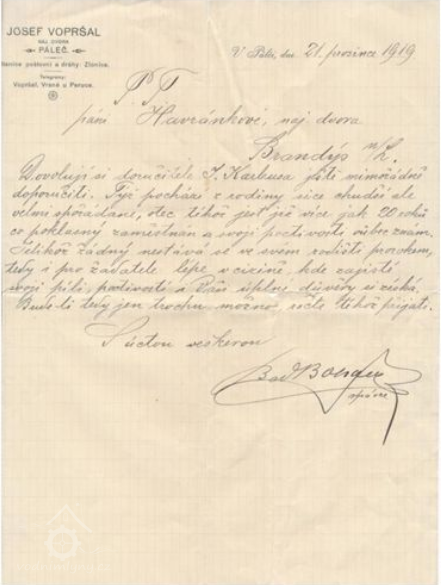 JOSEF VOPRŠAL
NÁJ. DVORA
PÁLEČ.
Stanice poštovní a dráhy: Zlonice.
Telegramy:
Vopršal, Vraný u Peruce.
V Pálči, dne 21. prosince 1919
P. T.
paní Havránkové, náj. dvora
Brandýs n/L.
Dovoluji si doručitele J. Karbusa jisté mimořádně
doporučiti. Týž pochází z rodiny sice chudší ale
velmi spořádané, otec téhož jest již více jak 20 roků
co poklasný zaměstnán a svojí poctivostí vůbec znám.
Jelikož žádný nestává se ve svém rodišti prorokem,
tedy i pro žadatele lépe v cizině, kde zajisté
svojí pílí, poctivostí a Vaši úplné důvěry si získá.
Bude-li tedy jen trochu možno, račte téhož přijati.
S úctou veškerou
správce